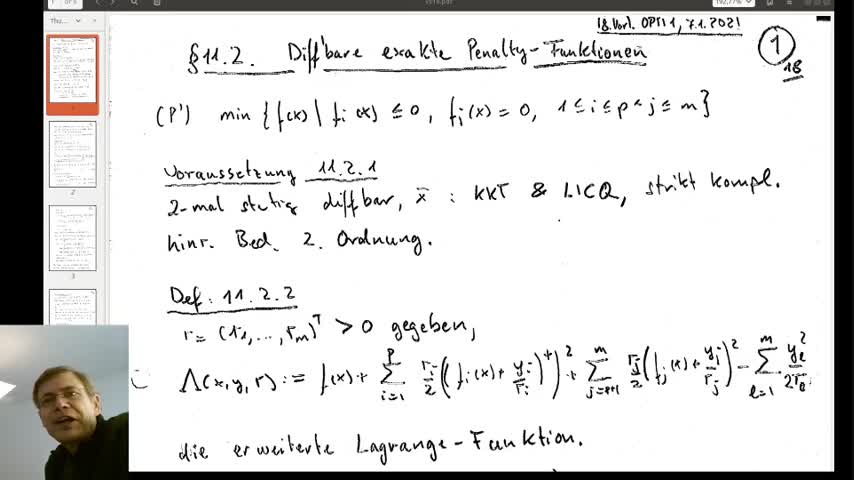 18. Vorl. OPTI 1, 7.1.2021
1
18
§11.2. Diffbare exakte Penalty-Funktionen
(P') min {f(x) | f_i(x) ≤ 0, f_j(x) = 0, 1 ≤ i ≤ p < j ≤ m}
Voraussetzung 11.2.1
2-mal stetig diffbar, x̄ : KKT & LICQ, strikt kompl.
hinr. Bed. 2. Ordnung.
Def: 11.2.2
r = (r_1, ..., r_m)^T > 0 gegeben,
Λ(x,y,r) := f(x) + ∑_{i=1}^{p} r_i/2 ((f_i(x) + y_i/r_i)^+)^2 + ∑_{j=p+1}^{m} r_j/2 (f_j(x) + y_j/r_j)^2 - ∑_{l=1}^{m} y_l^2/2r_l
die erweiterte Lagrange-Funktion.
1
2
3